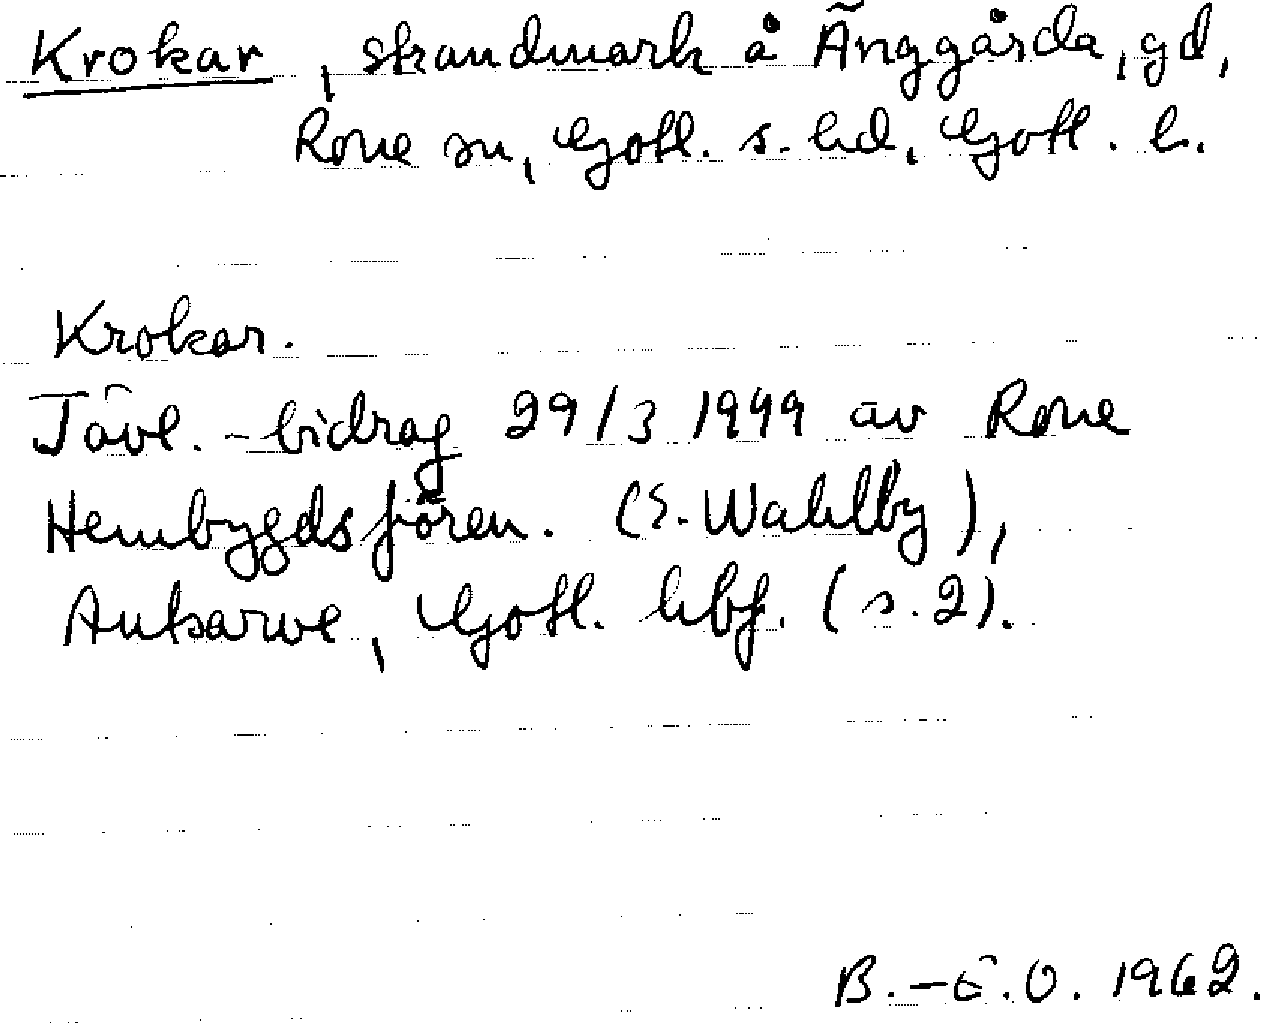 Krokar, strandmark å Änggårda, gd,
Rone sn, Gotl. s. hd, Gotl. l.
Krokar.
Tävl.-bidrag 29/3 1949 av Rone
Hembygdsfören. (E. Wahlby),
Autsarve, Gotl. hbf. (s. 2).
B.-E.O. 1962.